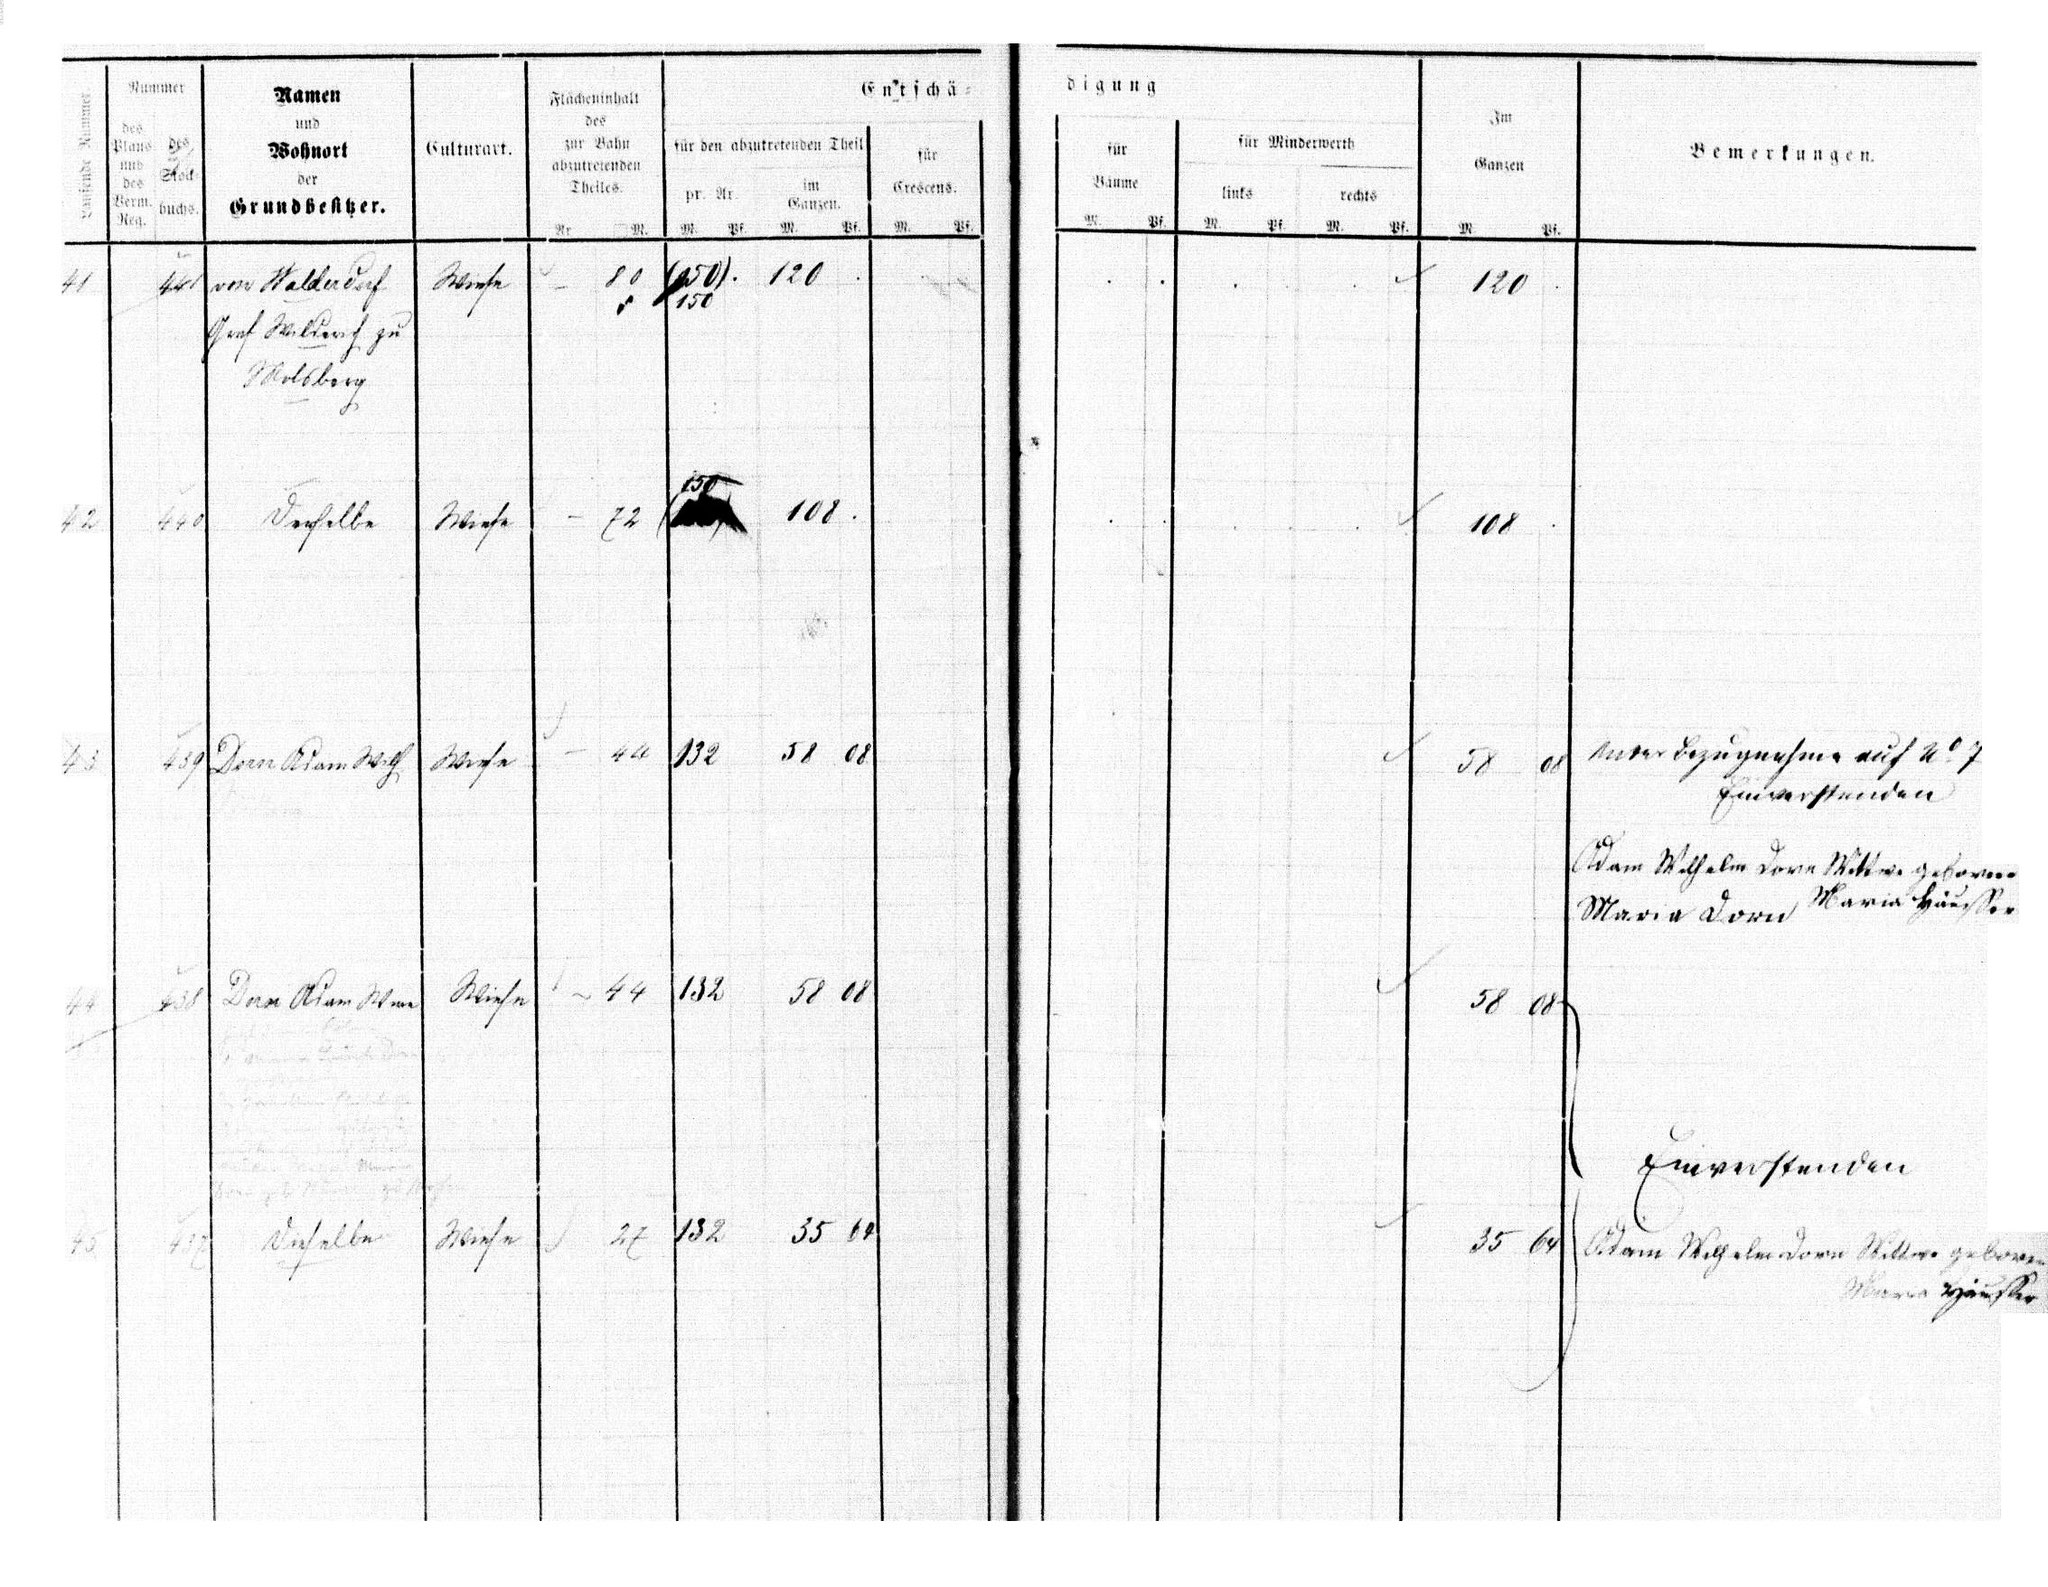 Entschä=
digung
Laufende Nummer
Nummer
des Plans und des Verm. Reg.
des Stock-
buchs.
Namen
und
Wohnort
der
Grundbesitzer.
Culturart.
Flächeninhalt
des
zur Bahn
abzutretenden
Theiles.
Ar □M.
für den abzutretenden Theil
pr. Ar
im
Ganzen.
M. Pf. M. Pf.
für
Crescens.
M. Pf.
für
Bäume
M. Pf.
für Minderwerth
links rechts
M. Pf. M. Pf.
Im
Ganzen
M. Pf.
Bemerkungen.
41 441 von Walderdorf Wiese – 80 (150). 120 . 120 .
150
Graf Wilderich zu
Molsberg
150
42 440 Derselbe Wiese – 72 108 . 108 .
43 439 Dorn Adam Wilh Wiese – 44 132 58 08 58 08 Unter Bezugnahme auf No 7
Einverstanden
Adam Wilhelm Dorn Wittwe geborne
Maria Dorn Maria Häusser
44 438 Dorn Adam Wwe Wiese – 44 132 58 08 58 08
Einverstanden
45 437 Dieselbe Wiese 27 132 35 64 35 64 Adam Wilhelm Dorn Wittwe geboren
Maria Häusser